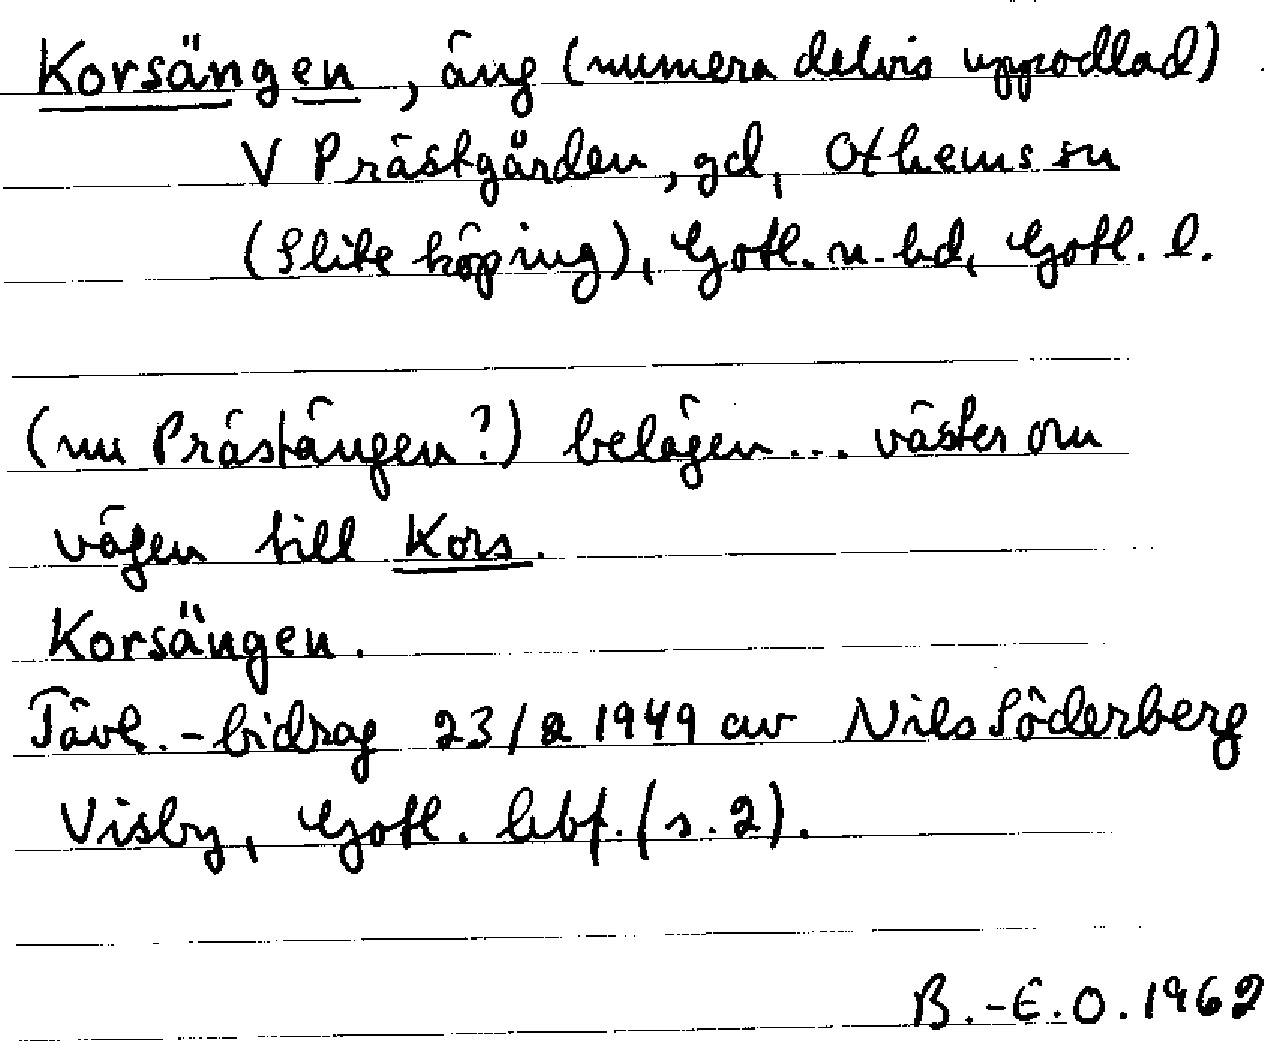 Korsängen, äng (numera delvis uppodlad)
V Prästgården, gd, Othems sn
(Slite köping), Gotl. n. hd, Gotl. l.
(nu Prästängen?) belägen... väster om
vägen till Kors.
Korsängen.
Tävl.-bidrag 23/2 1949 av Nils Söderberg
Visby, Gotl. (s. 2).
B.-E.O. 1962